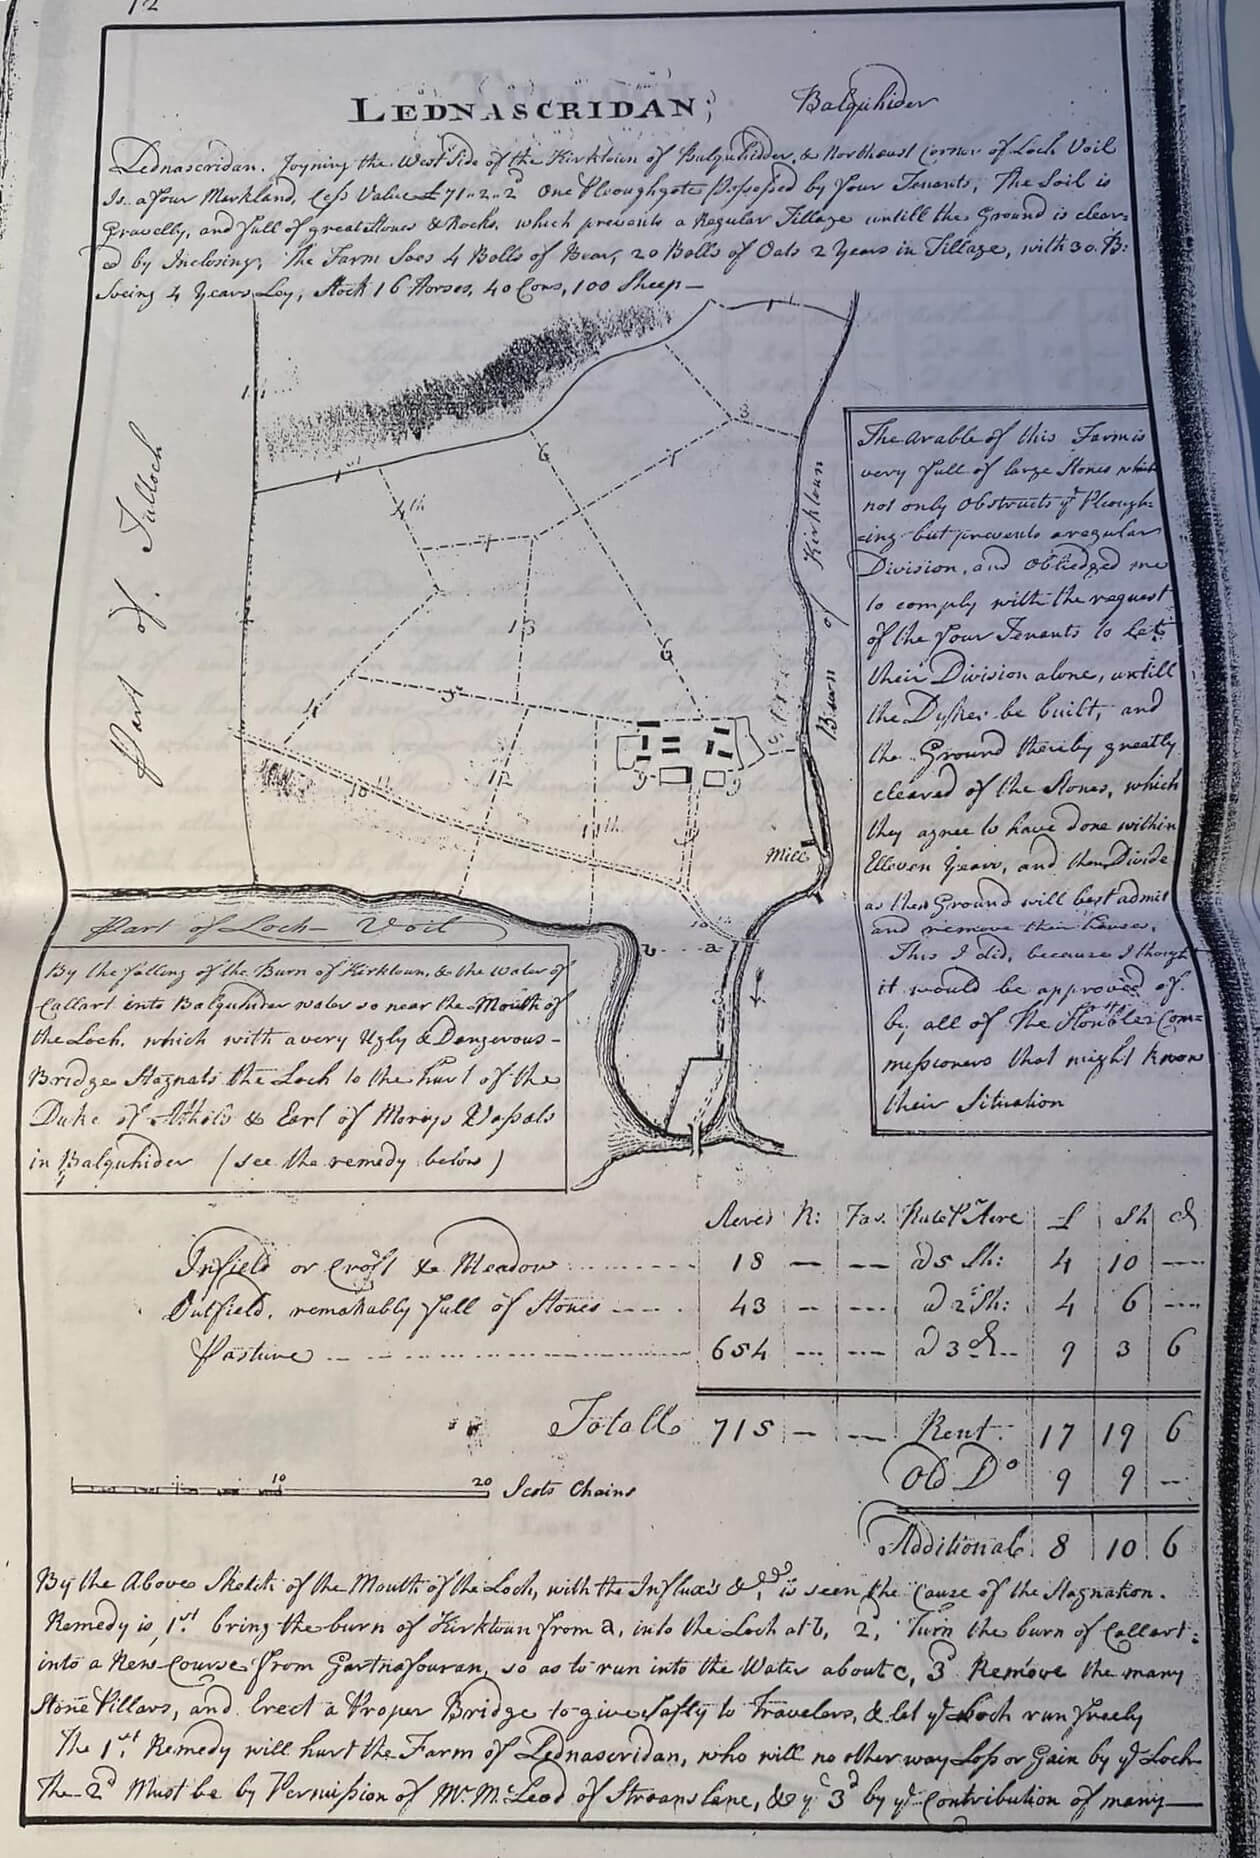 12
LEDNASCRIDAN; Balquhider
Lednascridan. Joyning the West Side of the Kirktown of Balquhidder, & Northeast Corner of Loch Voil
Is a four Merkland, Cess Value £71..2..2d One Ploughgate Possessed by four Tenants, The Soil is
Gravelly, and full of great Stones & Rocks, which prevents a Regular Tillage untill the Ground is clear=
ed by Inclosing, The Farm Soes 4 Bolls of Bear, 20 Bolls of Oats 2 Years in Tillage, with 30. B:
being 4 Years Ley, Stock 16 Horses, 40 Cows, 100 Sheep—
Part of Tulloch
Burn of Kirktoun
Mill
Part of Loch Voil
The arable of this Farm is
very full of large Stones which
not only obstructs ye Plough=
=ing but prevents a regular
Division, and obliedged me
to comply with the request
of the four Tenants to let
their Division alone, untill
the Dykes be built, and
the Ground thereby greatly
cleared of the Stones, which
they agree to have done within
Elleven Years, and then Divide
as then Ground will best admit
and remove their houses.
This I did, because I thought
it would be approved of
by all of The Honble: Com=
messioners that might know
their Situation
By the falling of the Burn of Kirktoun, & the Water of
Callart into Balquhider water so near the Mouth of
the Loch, which with a very Ugly & Dangerous-
Bridge Stagnats the Loch to the hurt of the
Duke of Athols & Earl of Morays Vassals
in Balquhider (see the remedy below)
Acres R: Fas. Rate Pr Acre £ Sh d
Infield or Croft & Meadow 18 — — a 5 Sh: 4 10 —
Outfield, remarkably full of Stones 43 — — a 2 Sh: 4 6 —
Pasture 654 — — a 3d 9 3 6
Totall 715 — — Rent 17 19 6
Old Do 9 9 —
10 20 Scots Chains
Additional 8 10 6
By the Above Sketch of the Mouth of the Loch, with the Influx's &c, is seen the Cause of the Stagnation.
Remedy is, 1st. bring the burn of Kirktoun from a, into the Loch at b, 2, Turn the burn of Callart:
into a New Course from Gartnafouran, so as to run into the Water about c, 3d Remove the many
Stone Pillars, and Erect a Proper Bridge to give Safty to Travelers, & let ye Loch run freely
The 1st. Remedy will hurt the Farm of Lednascridan, who will no other way Loss or Gain by ye Loch
The 2d Must be by Permission of Mr. McLeod of Stroanslane, & ye 3d by ye Contribution of many—